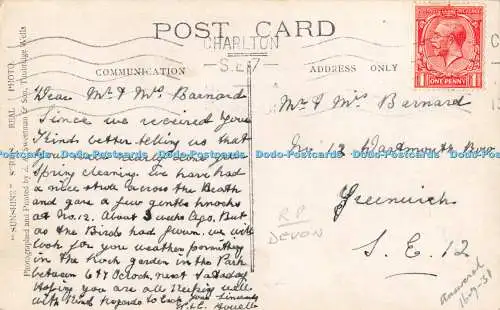 POST CARD
CHARLTON
S.E.7
COMMUNICATION
ADDRESS ONLY
POSTAGE REVENUE
ONE PENNY
"SUNSHINE" SERIES REAL PHOTO
Photographed and Printed by A. H. & Son, Tunbridge Wells
Dear Mr & Mrs Barnard
Since we received your
Kind letter telling us that
you were busily engaged
Spring Cleaning. We have had
a nice stroll across the Heath
and gave a few gentle knocks
at No. 12. About 3 weeks Ago. But
as the Birds had flown. we will
look for you weather permitting
in the Rock garden in the Park
between 6 & 7 Oclock next Saturday
Hoping you are all keeping well
with Kind regards to Each Yours Sincerely
Mr & Mrs Barnard
No. 12 Dartmouth Row
Greenwich
S.E. 12
RP
DEVON
answered
Dodo-Postcards.com